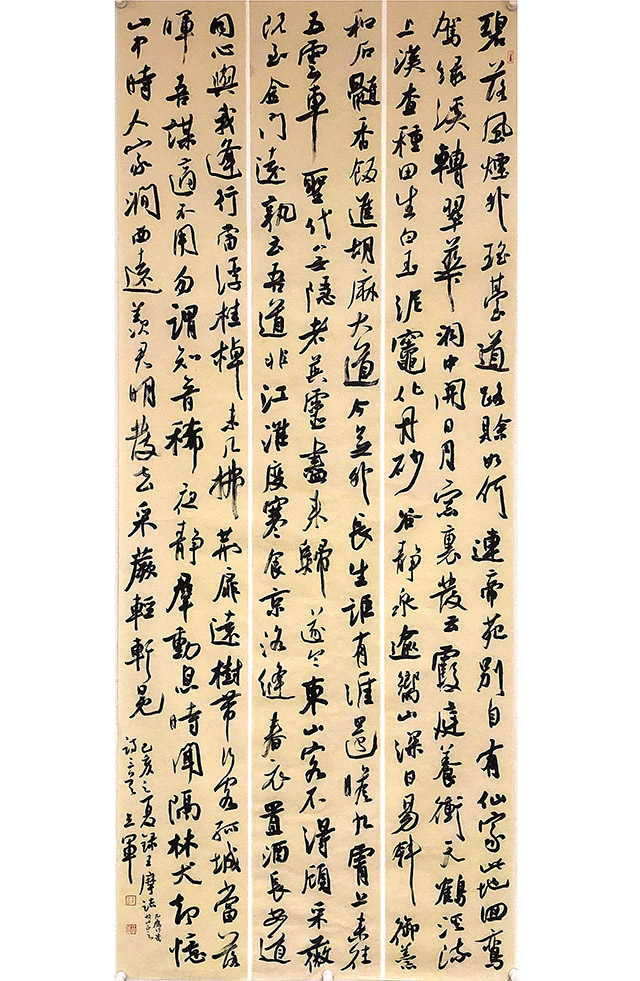 碧落風煙外瑤臺道路賒如何連帝苑別自有仙家此地回鸞
駕緣溪轉翠華洞中開日月窗裏發云霞庭養衝天鶴溪流
上漢查種田生白玉泥竈化丹砂谷靜泉逾響山深日易斜御羹
和石髓香飯進胡麻大道今無外長生詎有涯還瞻九霄上來往
五雲車聖代無隱者英靈盡來歸遂令東山客不得顧采薇
既至金門遠孰云吾道非江淮度寒食京洛縫春衣置酒長安道
同心與我逢行當浮桂棹未几拂荊扉遠樹帶行客孤城當落
暉吾謀適不用勿謂知音稀夜靜羣動息時聞隔林犬却憶
山中時人家澗西遠羨君明發去采蕨輕軒冕
己亥之夏錄王摩詰
詩三首立軍